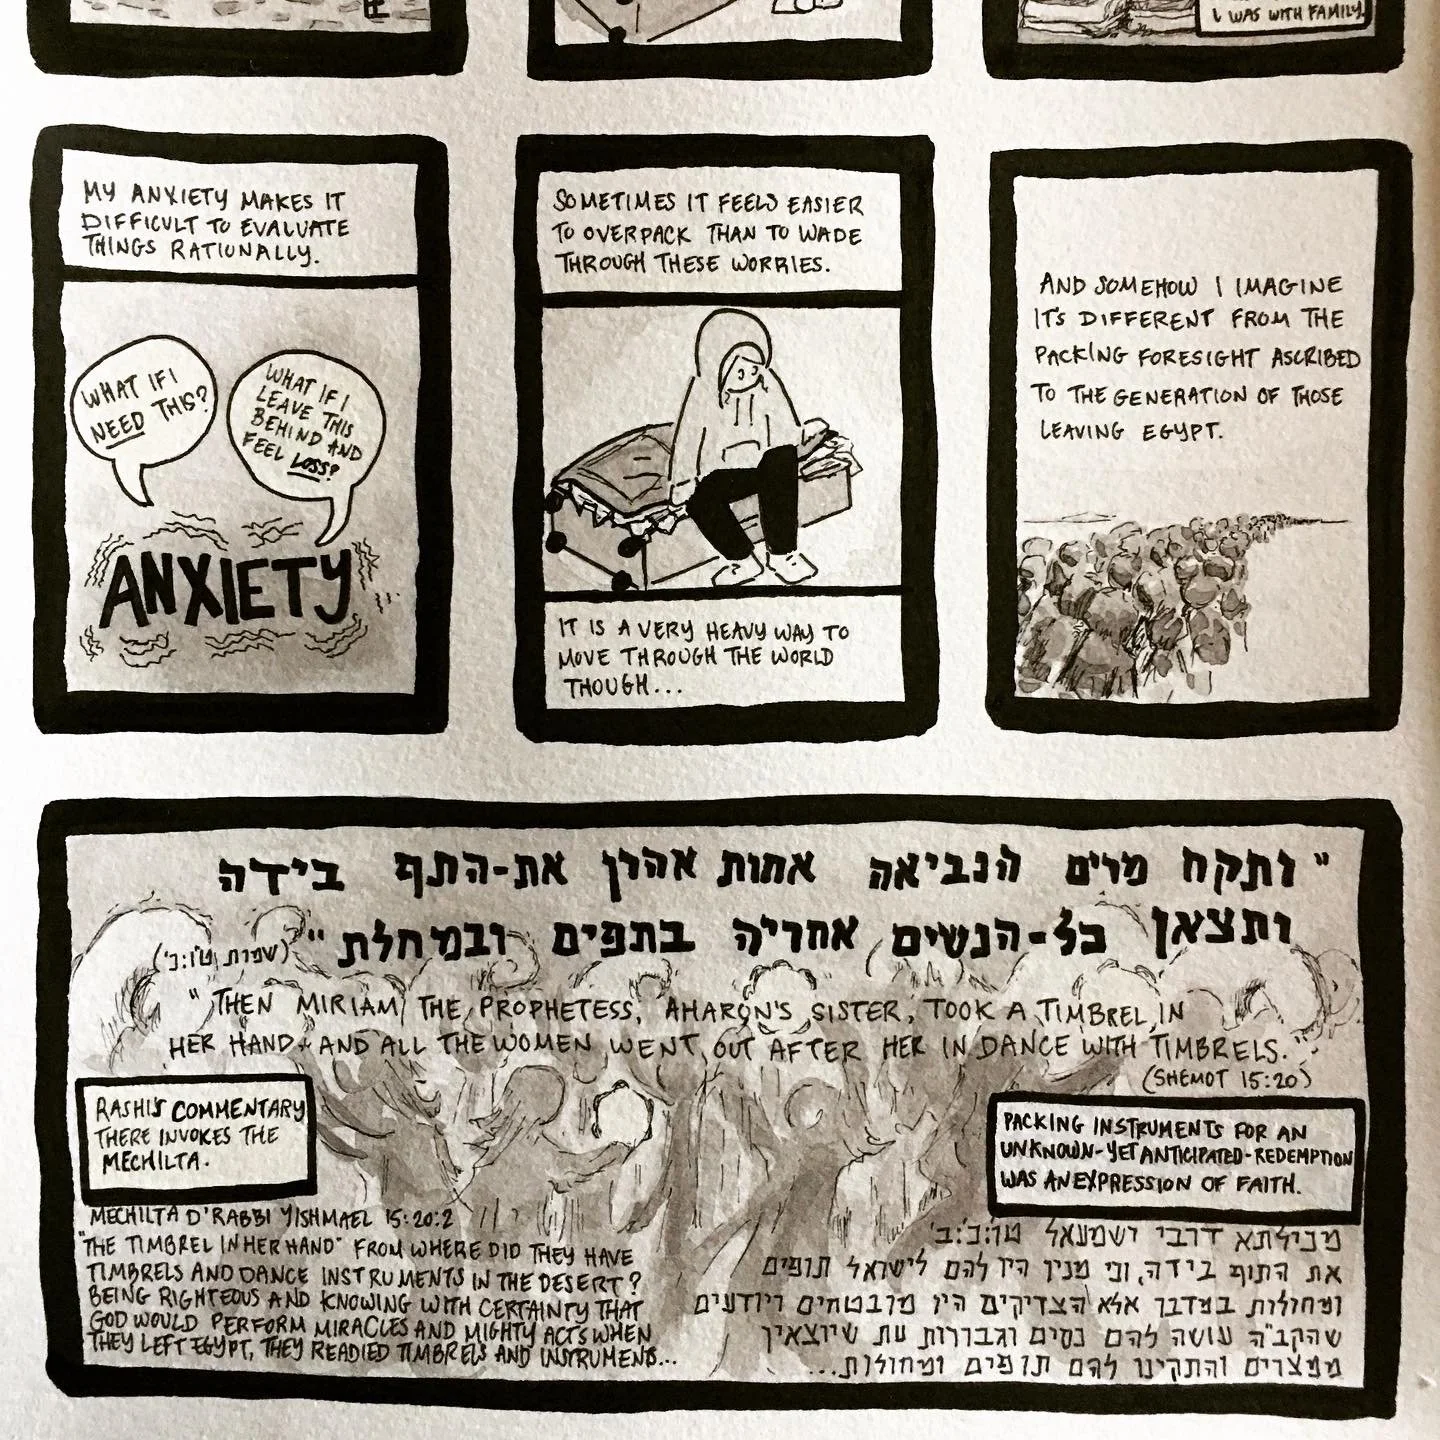 I WAS WITH FAMILY.
MY ANXIETY MAKES IT
DIFFICULT TO EVALUATE
THINGS RATIONALLY.
WHAT IF I
NEED THIS?
WHAT IF I
LEAVE THIS
BEHIND AND
FEEL LOSS?
ANXIETY
SOMETIMES IT FEELS EASIER
TO OVERPACK THAN TO WADE
THROUGH THESE WORRIES.
IT IS A VERY HEAVY WAY TO
MOVE THROUGH THE WORLD
THOUGH...
AND SOMEHOW I IMAGINE
IT'S DIFFERENT FROM THE
PACKING FORESIGHT ASCRIBED
TO THE GENERATION OF THOSE
LEAVING EGYPT.
"ותקח מרים הנביאה אחות אהרן את-התף בידה
ותצאן כל-הנשים אחריה בתפים ובמחלת" (שמות ט"ו:כ')
"THEN MIRIAM THE PROPHETESS, AHARON'S SISTER, TOOK A TIMBREL IN
HER HAND, AND ALL THE WOMEN WENT OUT AFTER HER IN DANCE WITH TIMBRELS."
(SHEMOT 15:20)
RASHI'S COMMENTARY
THERE INVOKES THE
MECHILTA.
PACKING INSTRUMENTS FOR AN
UNKNOWN-YET ANTICIPATED-REDEMPTION
WAS AN EXPRESSION OF FAITH.
MECHILTA D'RABBI YISHMAEL 15:20:2
"THE TIMBREL IN HER HAND" FROM WHERE DID THEY HAVE
TIMBRELS AND DANCE INSTRUMENTS IN THE DESERT?
BEING RIGHTEOUS AND KNOWING WITH CERTAINTY THAT
GOD WOULD PERFORM MIRACLES AND MIGHTY ACTS WHEN
THEY LEFT EGYPT, THEY READIED TIMBRELS AND INSTRUMENTS...
מכילתא דרבי ישמעאל טו:כ:ב'
את התוף בידה, וכי מנין היו להם לישראל תופים
ומחולות במדבר אלא הצדיקים היו מובטחים ויודעים
שהקב"ה עושה להם נסים וגבורות עת שיוצאין
ממצרים והתקינו להם תופים ומחולות...